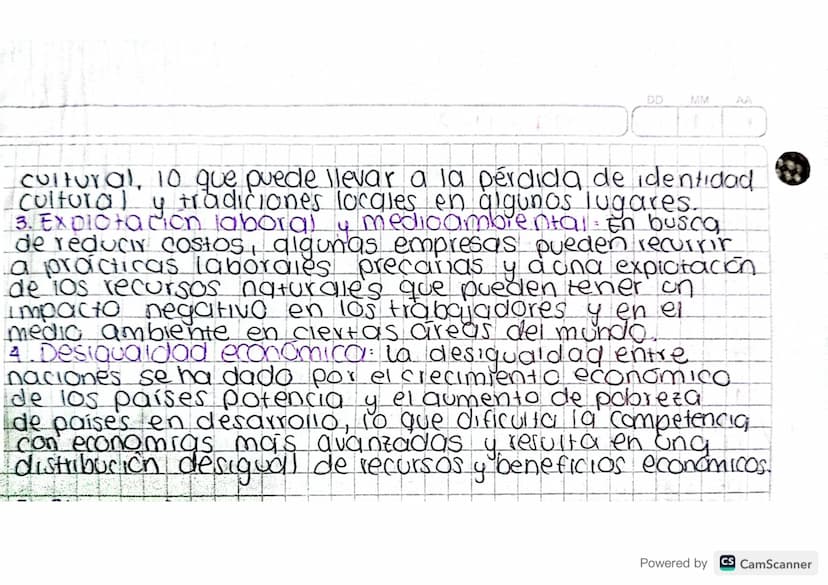 DD MM AA
cultural, lo que puede llevar a la pérdida de identidad
cultural y tradiciones locales en algunos lugares.
3. Explotación laboral y medioambiental: En busca
de reducir costos, algunas empresas pueden recurrir
a prácticas laborales precarias y a una explotación
de los recursos naturales que pueden tener un
impacto negativo en los trabajadores y en el
medio ambiente en ciertas áreas del mundo.
4. Desigualdad económica: La desigualdad entre
naciones se ha dado por el crecimiento económico
de los países potencia y el aumento de pobreza
de países en desarrollo, lo que dificulta la competencia
con economías más avanzadas y resulta en una
distribución desigual de recursos y beneficios económicos.
Powered by CS CamScanner